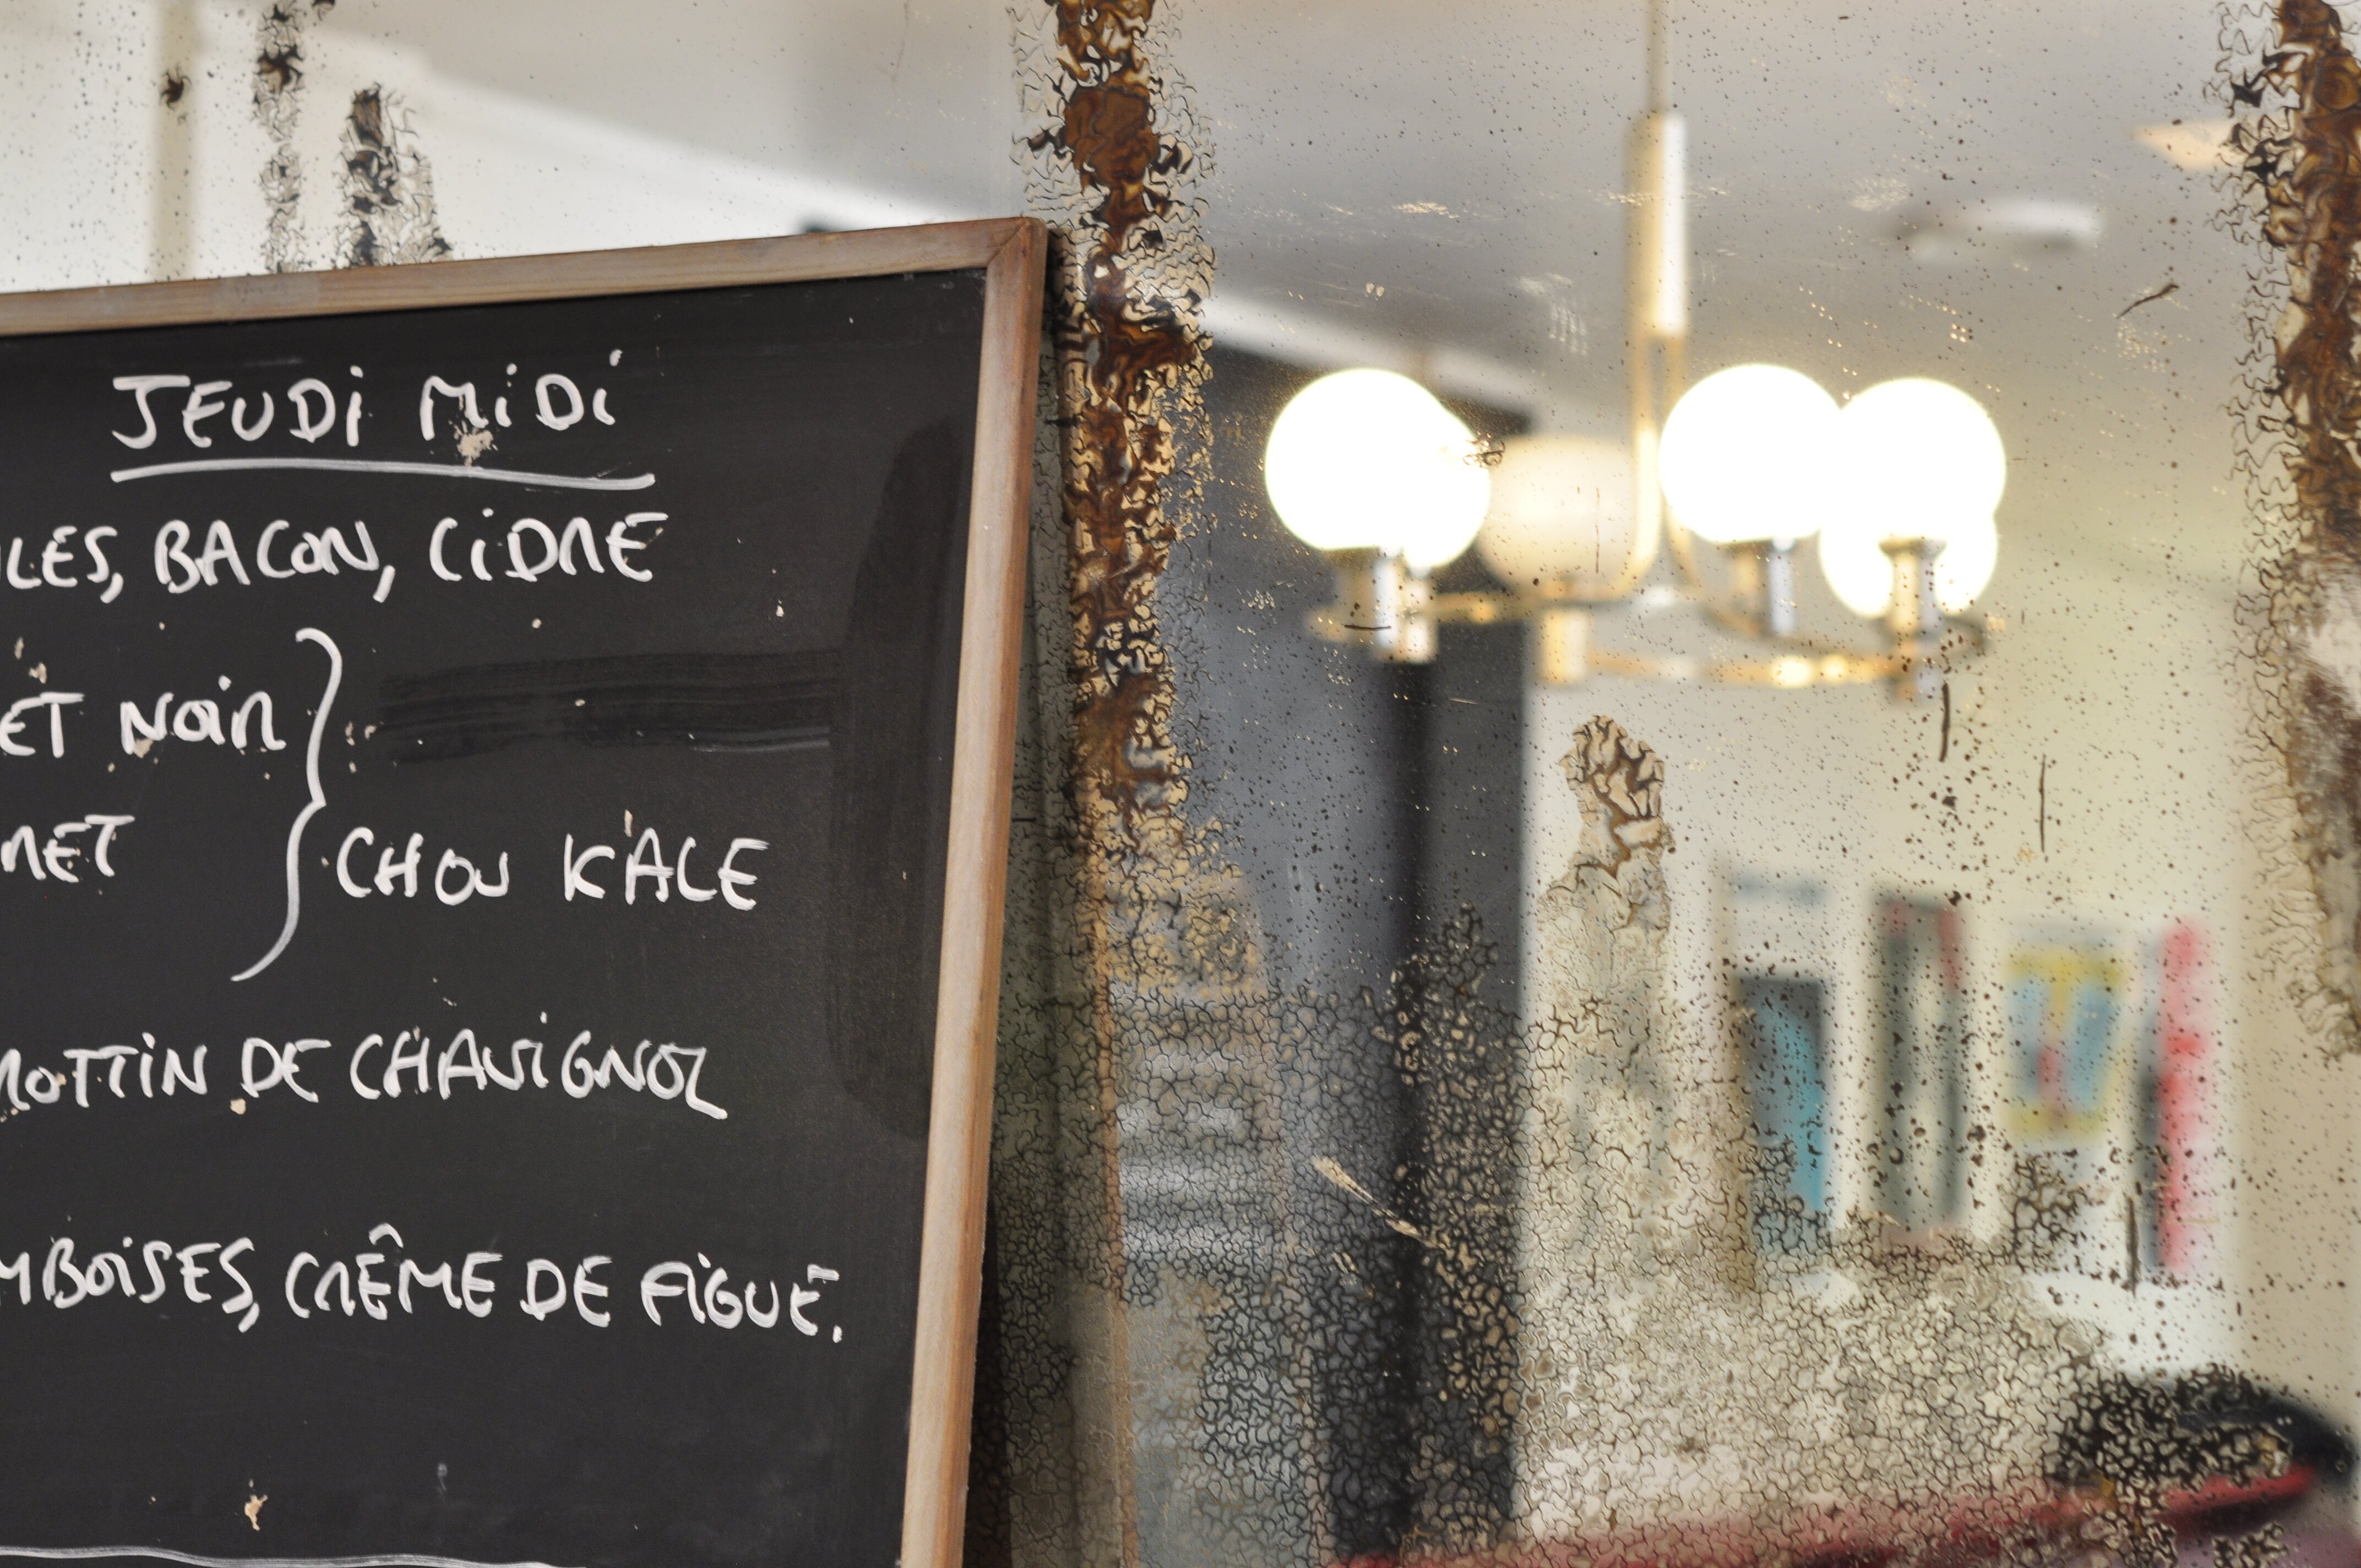 JEUDi MiDi
LES, BACON, CiDRE
ET NOiR
CHOU KALE
NET
ROTTiN DE CHAViGNOL
MBOiSES, CRÊME DE FiGUE.